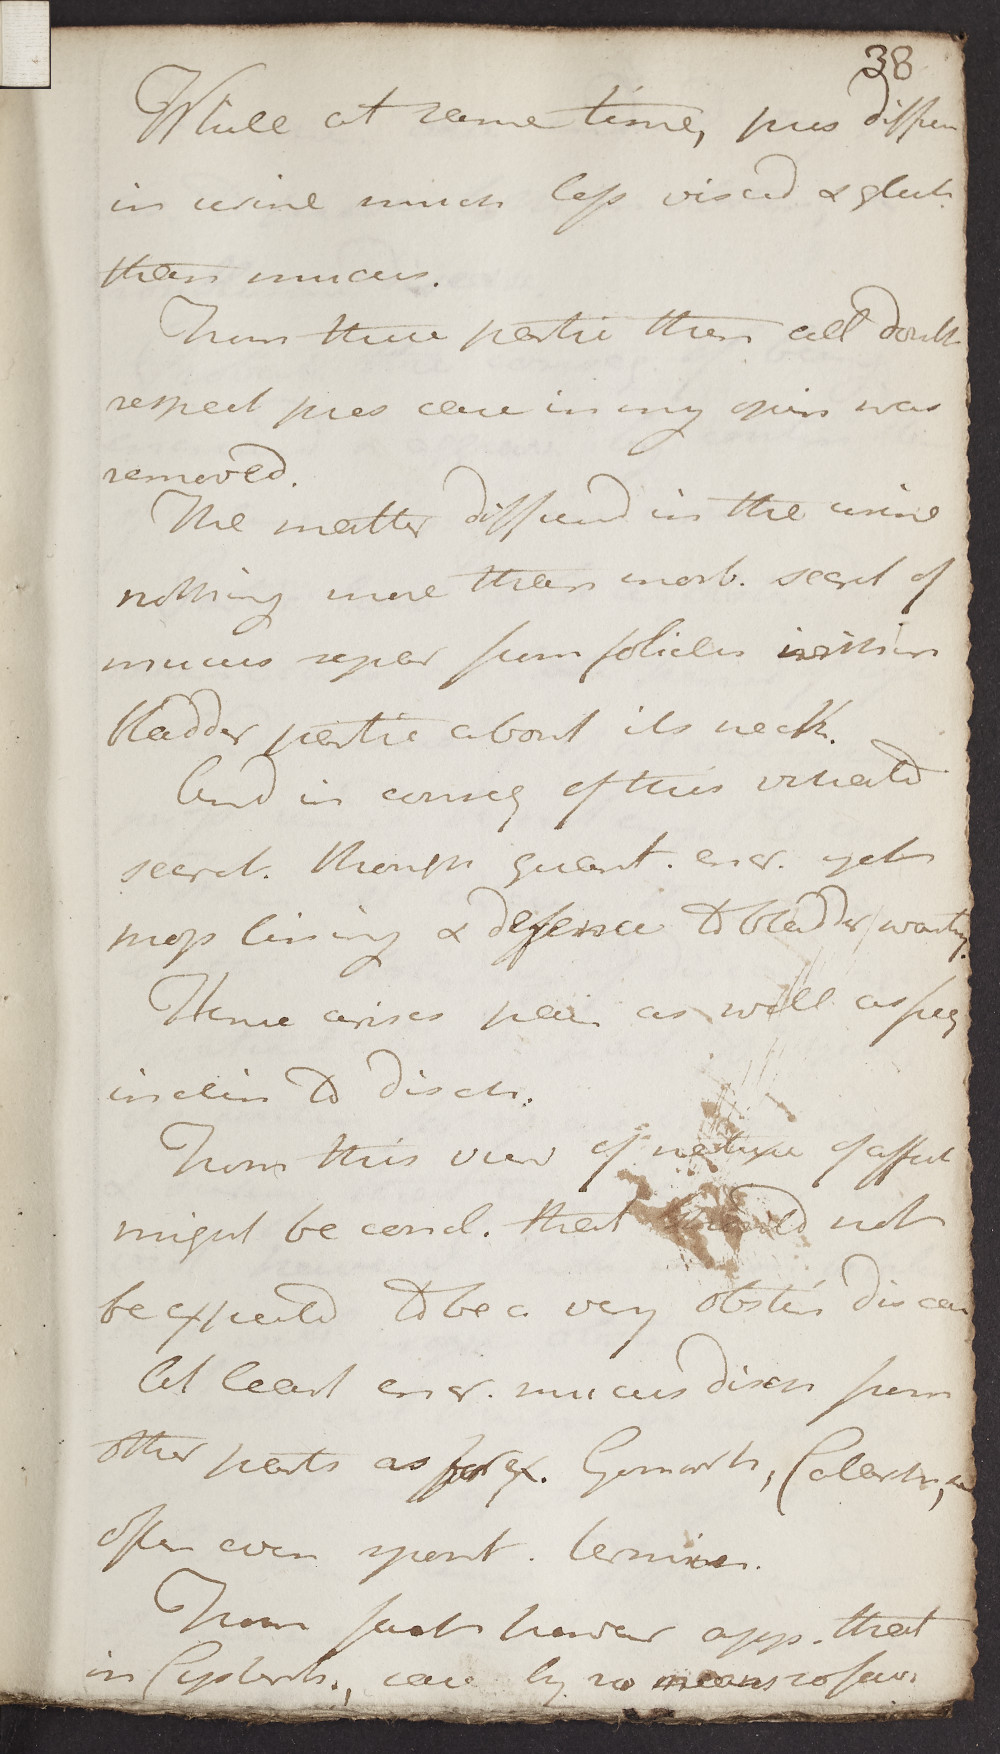 38
While at same time, pus diffus
in urine much less viscid & glut.
than mucus.
From these partic then all doubt
respect pres case in my opin was
removed.
The matter diffused in the urine
nothing more than morb. secret of
mucus separ from folicles within
bladder partic about its neck.
And in conseq of this vitiated
secret. though quant. encr. yet
lining & defence to bladder wanting.
Hence arises pain as well as freq
inclin to disch.
From this view of nature of affect
might be concl. that should not
be expected to be a very obstin disease
At least encr. mucus disch from
other parts as for ex. Gonorrh, Catarrh,
often even spont. termin.
From facts however app. that
in Cystirrh., case by no means so fav.